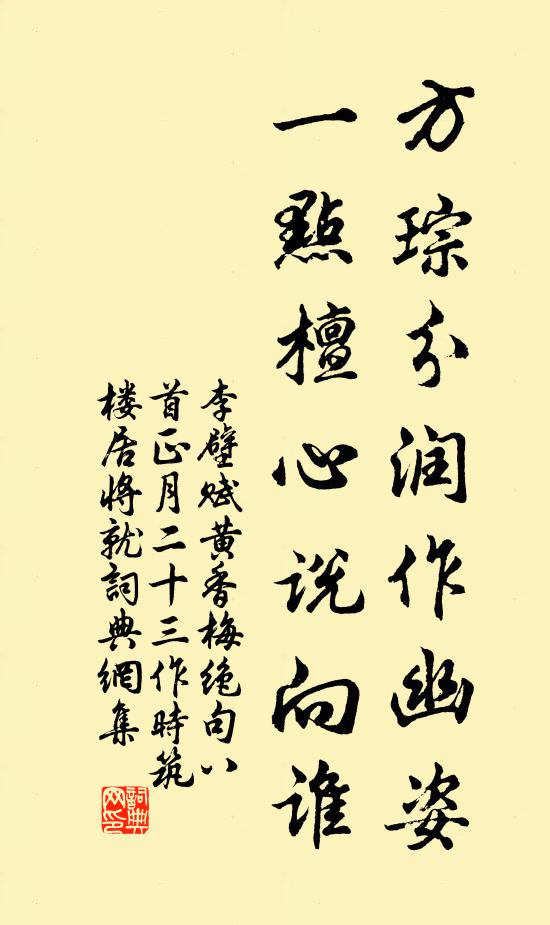 方琮分润作幽姿
一點檀心说向谁
李壁赋黄香梅绝句八
首正月二十三作時筑
楼居将就詞典網集
詞典
网印